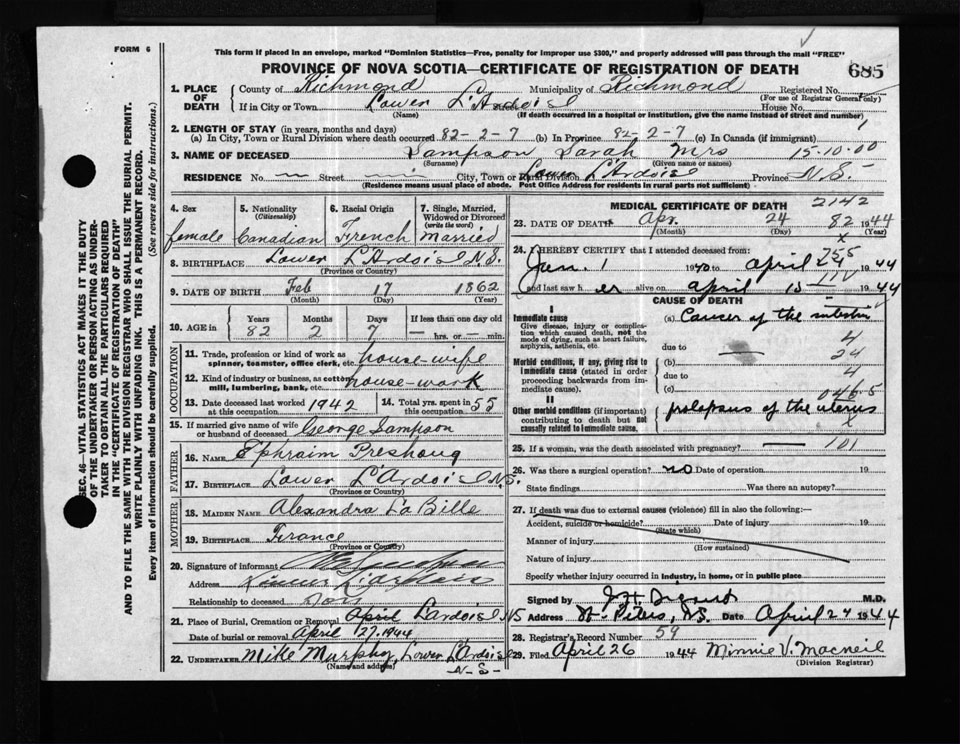 FORM 6
This form if placed in an envelope, marked "Dominion Statistics—Free, penalty for improper use $300," and properly addressed will pass through the mail "FREE"
PROVINCE OF NOVA SCOTIA—CERTIFICATE OF REGISTRATION OF DEATH
685
1. PLACE OF DEATH
County of Richmond Municipality of Richmond Registered No.
(For use of Registrar General only)
If in City or Town Lower L'Ardoise House No.
(Name) (If death occurred in a hospital or institution, give the name instead of street and number)
2. LENGTH OF STAY (in years, months and days)
(a) In City, Town or Rural Division where death occurred 82-2-7 (b) In Province 82-2-7 (c) In Canada (if immigrant)
3. NAME OF DECEASED Sampson Sarah Mrs 15-10-00
(Surname) (Given name or names)
RESIDENCE No. Street City, Town or Rural Division Lower L'Ardoise Province N.S.
(Residence means usual place of abode. Post Office Address for residents in rural parts not sufficient)
4. Sex
female
5. Nationality
(Citizenship)
Canadian
6. Racial Origin
French
7. Single, Married, Widowed or Divorced
(write the word)
Married
8. BIRTHPLACE Lower L'Ardoise N.S.
(Province or Country)
9. DATE OF BIRTH Feb 17 1862
(Month) (Day) (Year)
10. AGE in
Years Months Days If less than one day old
82 2 7 hrs. or min.
OCCUPATION
11. Trade, profession or kind of work as spinner, teamster, office clerk, etc. house-wife
12. Kind of industry or business, as cotton mill, lumbering, bank, etc. house-work
13. Date deceased last worked at this occupation 1942
14. Total yrs. spent in this occupation 55
15. If married give name of wife or husband of deceased George Sampson
FATHER
16. NAME Ephraim
17. BIRTHPLACE Lower L'Ardoise N.S.
(Province or Country)
MOTHER
18. MAIDEN NAME Alexandra La Bille
19. BIRTHPLACE France
(Province or Country)
20. Signature of informant
Address
Relationship to deceased Son
21. Place of Burial, Cremation or Removal L'ardoise NS
Date of burial or removal April 27, 1944
22. UNDERTAKER Mike Murphy, Lower L'Ardoise
(Name and address) N-S-
MEDICAL CERTIFICATE OF DEATH
2142
23. DATE OF DEATH Apr. 24 82 1944
(Month) (Day) (Year)
24. I HEREBY CERTIFY that I attended deceased from:
Jan. 1 to April 1944
and last saw her alive on April 15 1944
CAUSE OF DEATH
I
Immediate cause
Give disease, injury or complication which caused death, not the mode of dying, such as heart failure, asphyxia, asthenia, etc.
(a) Cancer of the intestine
due to
4
24
Morbid conditions, if any, giving rise to immediate cause (stated in order proceeding backwards from immediate cause).
(b)
due to
(c)
046.5
II
Other morbid conditions (if important) contributing to death but not causally related to immediate cause.
prolapsus of the uterus
x
25. If a woman, was the death associated with pregnancy? 101
26. Was there a surgical operation? no Date of operation 19
State findings Was there an autopsy?
27. If death was due to external causes (violence) fill in also the following:—
Accident, suicide or homicide? Date of injury 19
(State which)
Manner of injury
(How sustained)
Nature of injury
Specify whether injury occurred in industry, in home, or in public place
Signed by M.D.
Address St. Peters, N.S. Date April 24 1944
28. Registrar's Record Number 59
29. Filed April 26 1944 Minnie V. Macneil
(Division Registrar)
SEC. 46—VITAL STATISTICS ACT MAKES IT THE DUTY
OF THE UNDERTAKER OR PERSON ACTING AS UNDER-
TAKER TO OBTAIN ALL THE PARTICULARS REQUIRED
IN THE "CERTIFICATE OF REGISTRATION OF DEATH"
AND TO FILE THE SAME WITH THE DIVISION REGISTRAR WHO SHALL ISSUE THE BURIAL PERMIT.
WRITE PLAINLY WITH UNFADING INK. THIS IS A PERMANENT RECORD.
Every item of information should be carefully supplied. (See reverse side for instructions.)